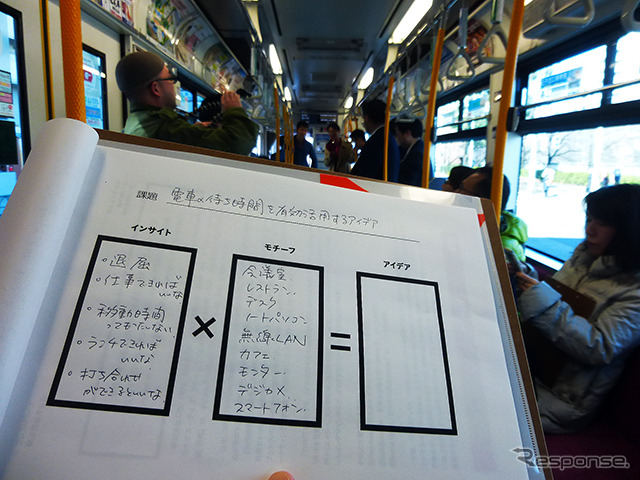 課題 電車の待ち時間を有効活用するアイデア
インサイト
。退屈
。仕事できればいいな
。移動時間
ってもったいない
。ランチできれば
いいな
。打ち合わせ
ができるといいな
×
モチーフ
会議室
レストラン
デスク
ノートパソコン
無線LAN
カフェ
モニター
デジカメ
スマートフォン
=
アイデア
Response.